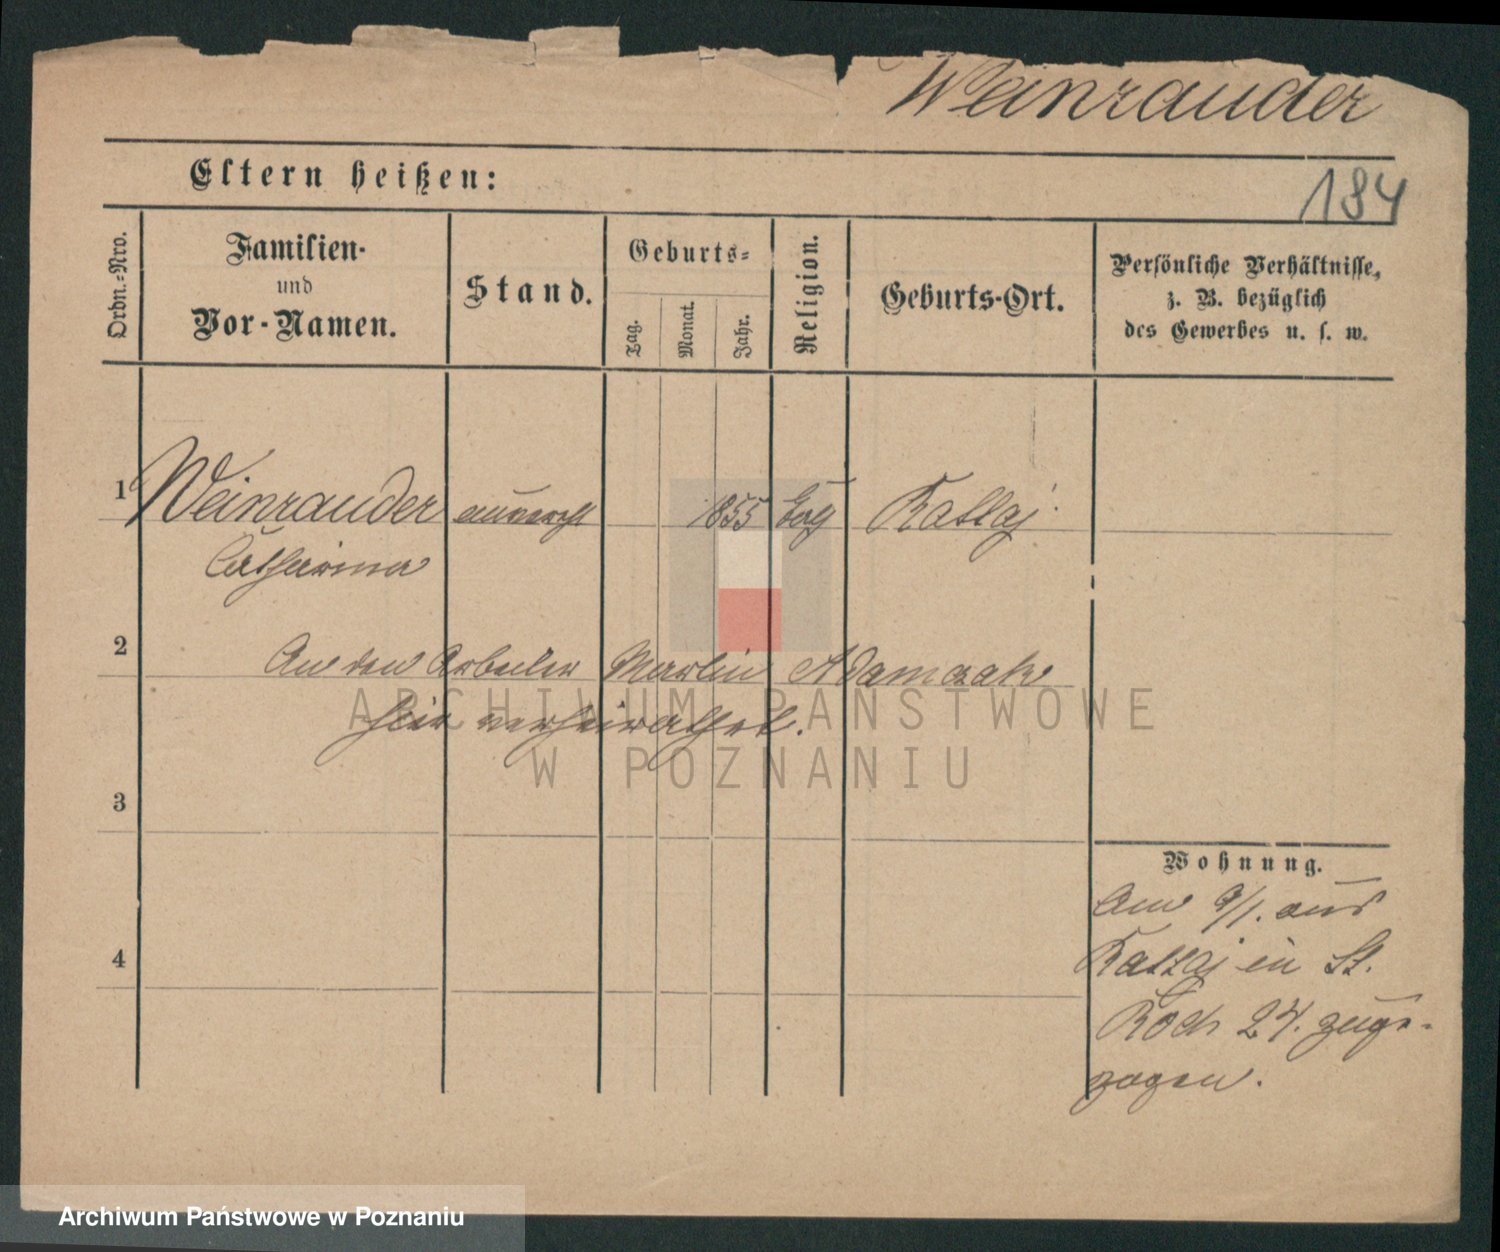 Weinrauder
Eltern heißen:
184
Ordn.=Nro.
Familien-
und
Vor-Namen.
Stand.
Geburts=
Tag.
Monat.
Jahr.
Religion.
Geburts-Ort.
Persönliche Verhältnisse,
z. B. bezüglich
des Gewerbes u. s. w.
1 Weinrauder unverehl 1855 Rattaj
Catharina
2 An den Arbeiter Martin Adamczak
hier verheirathet.
3
4
Wohnung.
Am 9/1. aus
Rattaj in St.
Roch 24. zuge-
zogen.
ARCHIWUM PAŃSTWOWE
W POZNANIU
Archiwum Państwowe w Poznaniu